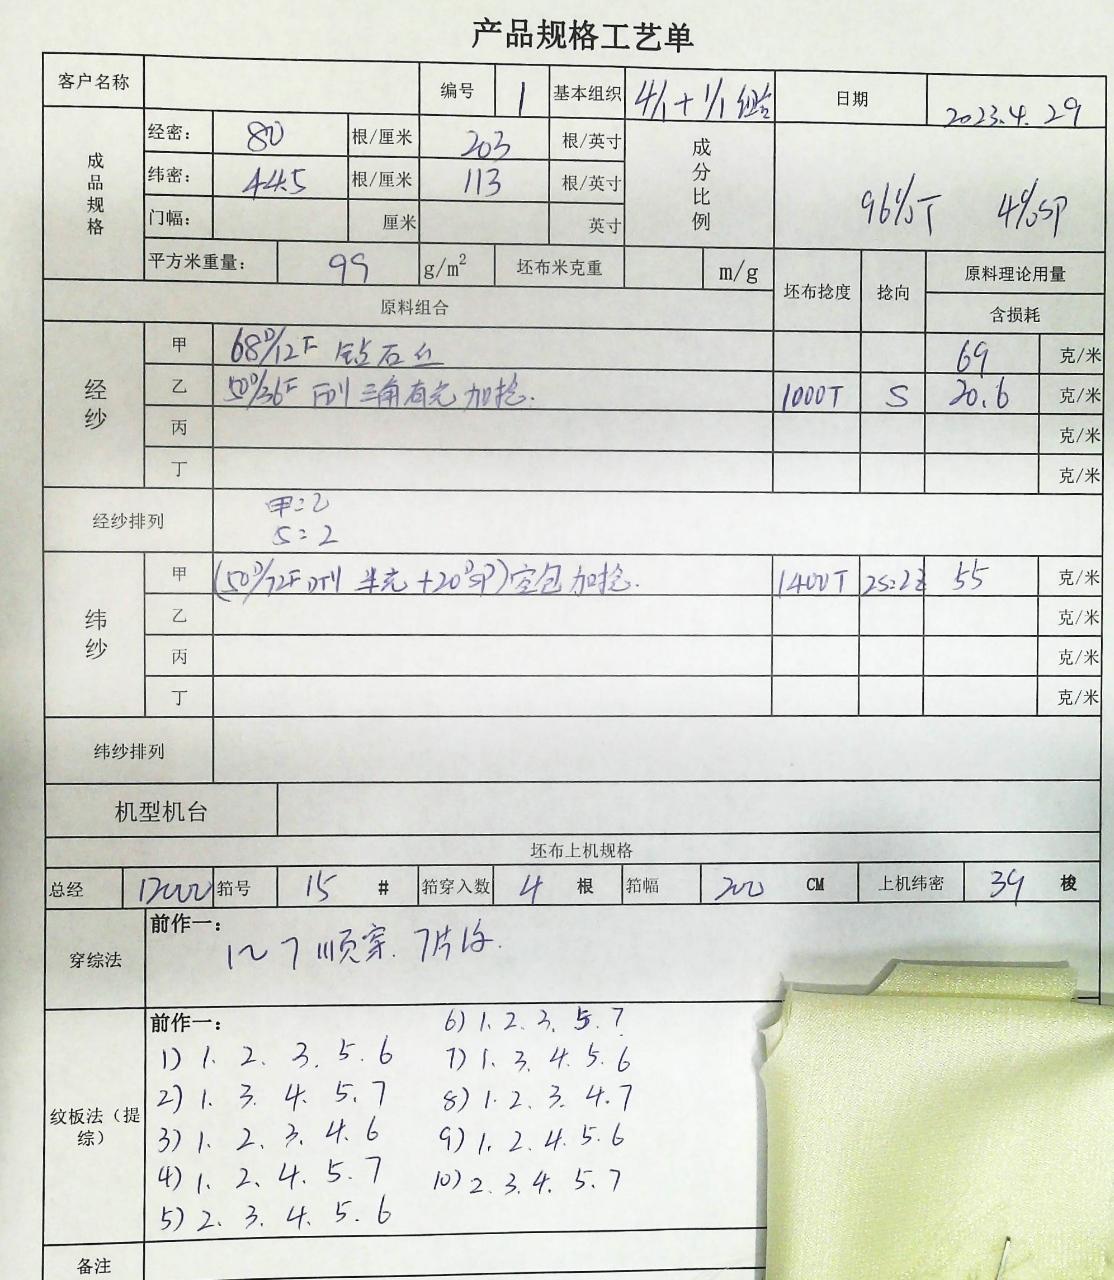 产品规格工艺单
客户名称 编号 1 基本组织 4/1+1/1 组合 日期 2023.4.29
成品规格
经密： 80 根/厘米 203 根/英寸
纬密： 44.5 根/厘米 113 根/英寸
门幅： 厘米 英寸
成分比例 96%T 4%SP
平方米重量： 99 g/m² 坯布米克重 m/g
坯布捻度 捻向 原料理论用量
含损耗
原料组合
经纱
甲 68D/12F 钻石丝 69 克/米
乙 50D/36F FDY 三角有光 加捻. 1000T S 20.6 克/米
丙 克/米
丁 克/米
经纱排列 甲=2
S=2
纬纱
甲 (50D/72F DTY 半光+20DSP)空包 加捻. 1400T 2S:2Z 55 克/米
乙 克/米
丙 克/米
丁 克/米
纬纱排列
机型机台
坯布上机规格
总经 12000 筘号 15 # 筘穿入数 4 根 筘幅 200 CM 上机纬密 39 梭
穿综法
前作一：
1~7 顺穿. 7片
纹板法（提综）
前作一：
1) 1. 2. 3. 5. 6
2) 1. 3. 4. 5. 7
3) 1. 2. 3. 4. 6
4) 1. 2. 4. 5. 7
5) 2. 3. 4. 5. 6
6) 1. 2. 3. 5. 7
7) 1. 3. 4. 5. 6
8) 1. 2. 3. 4. 7
9) 1. 2. 4. 5. 6
10) 2. 3. 4. 5. 7
备注